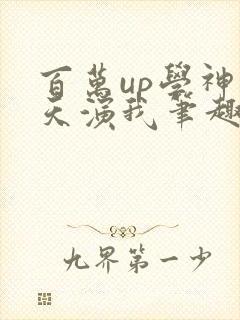 百萬up學神
天演我筆趣
九界第一少